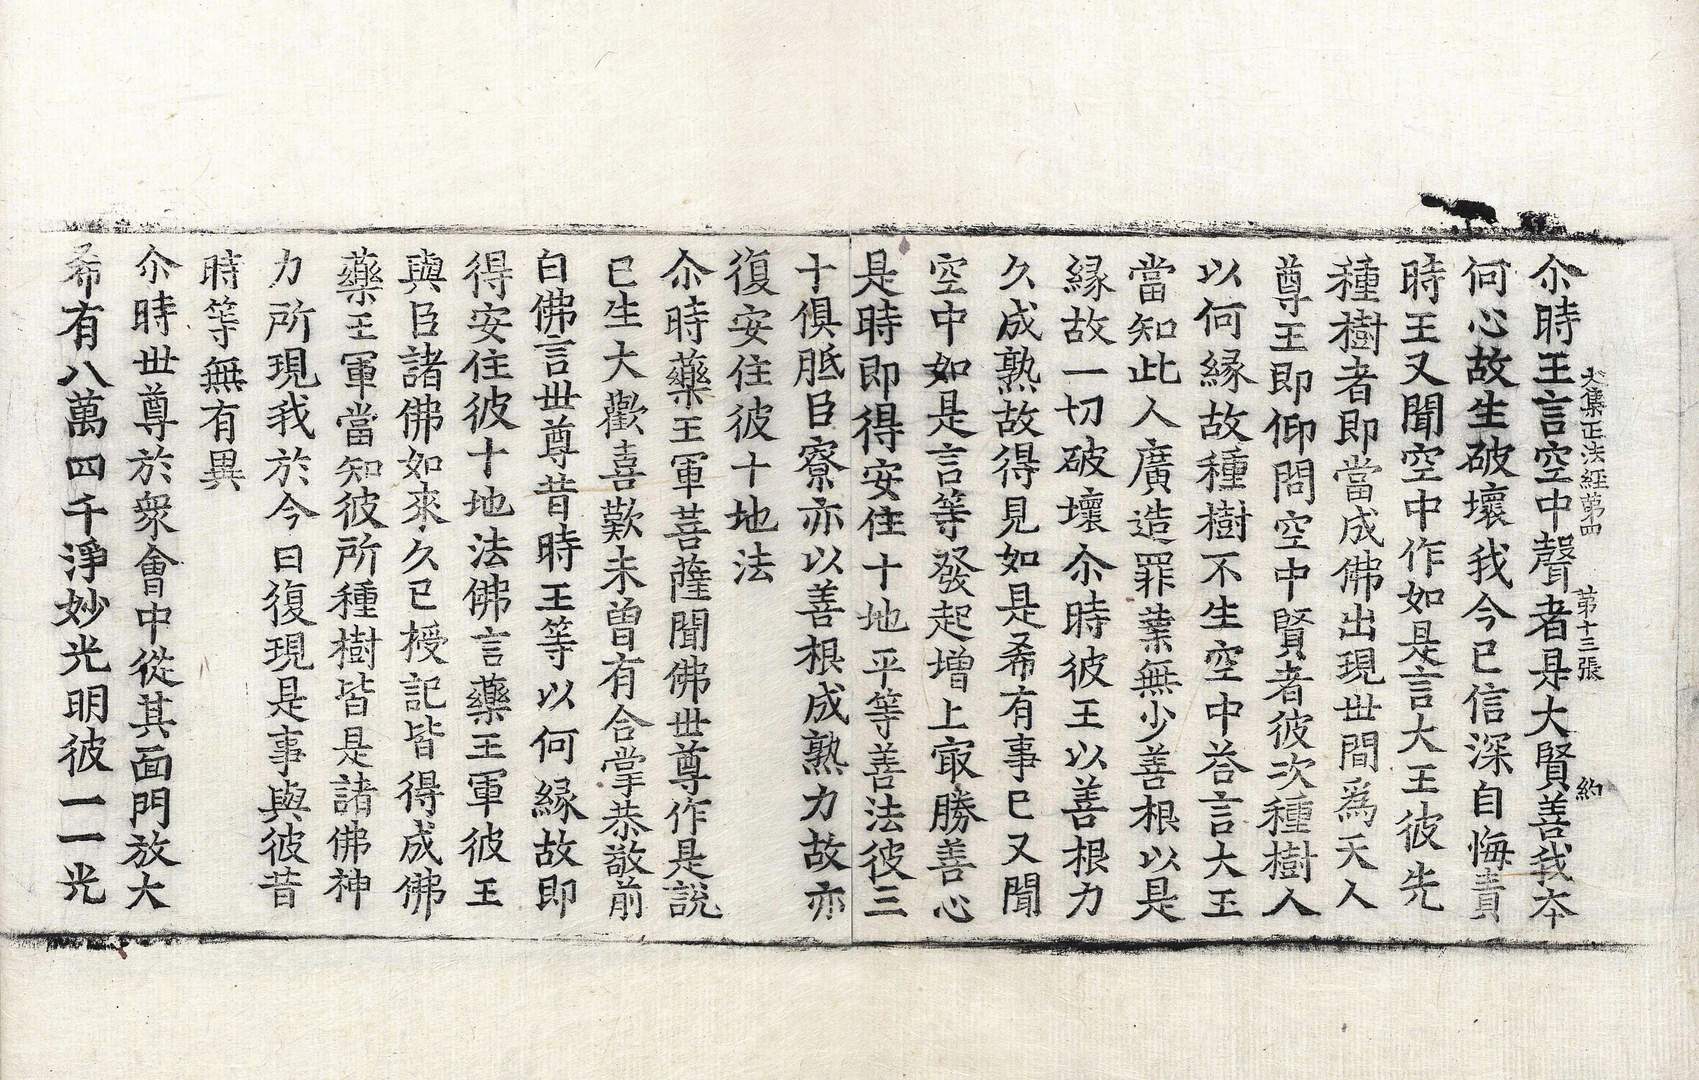 大集正法經第四 第十三張 約
尒時王言空中聲者是大賢善我本
何心故生破壞我今已信深自悔責
時王又聞空中作如是言大王彼先
種樹者即當成佛出現世間爲天人
尊王即仰問空中賢者彼次種樹人
以何縁故種樹不生空中荅言大王
當知此人廣造罪業無少善根以是
縁故一切破壞尒時彼王以善根力
久成熟故得見如是希有事已又聞
空中如是言等發起增上㝡勝善心
是時即得安住十地平等善法彼三
十俱胝臣寮亦以善根成熟力故亦
復安住彼十地法
尒時藥王軍菩薩聞佛世尊作是說
已生大歡喜歎未曽有合掌恭敬前
白佛言世尊昔時王等以何縁故即
得安住彼十地法佛言藥王軍彼王
與臣諸佛如來久已授記皆得成佛
藥王軍當知彼所種樹皆是諸佛神
力所現我於今日復現是事與彼昔
時等無有異
尒時世尊於衆會中從其面門放大
希有八萬四千淨妙光明彼一一光